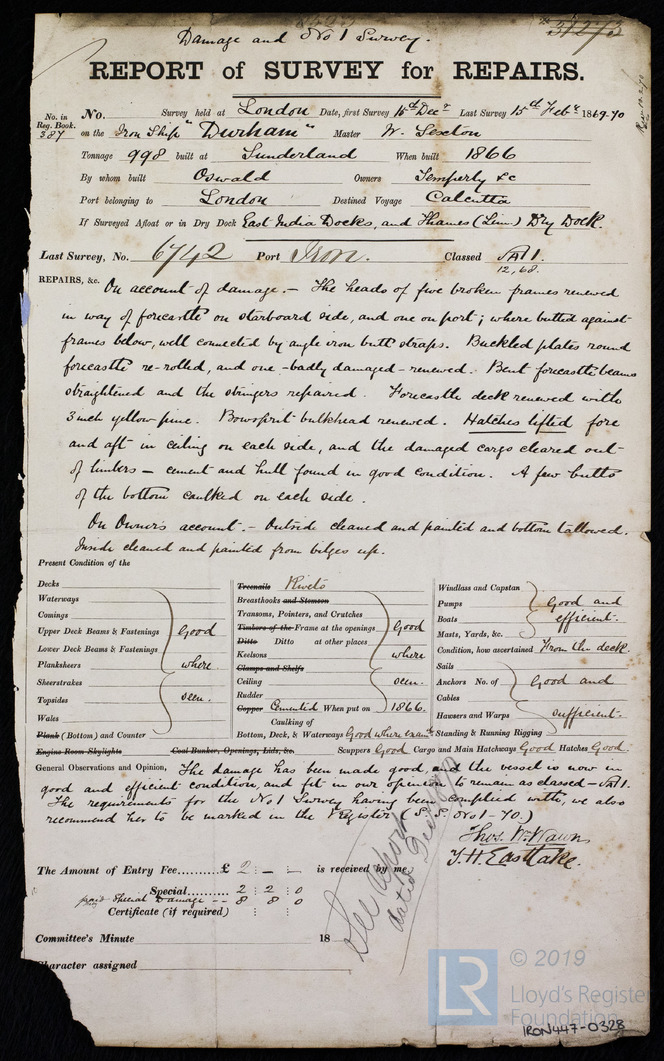 31273
Damage and No 1 Survey.
REPORT of SURVEY for REPAIRS.
No. in Reg. Book. 387
No. Survey held at London Date, first Survey 15th Decr Last Survey 15th Feby 1869-70
on the Iron Ship "Durham" Master W. Sexton
Tonnage 998 built at Sunderland When built 1866
By whom built Oswald Owners Temperly &c
Port belonging to London Destined Voyage Calcutta
If Surveyed Afloat or in Dry Dock East India Docks, and Thames (Lim.) Dry Dock.
Last Survey, No. 6742 Port Iron. Classed A1.
12,68.
REPAIRS, &c. On account of damage.— The heads of five broken frames renewed
in way of forecastle on starboard side, and one on port; where butted against
frames below, well connected by angle iron butt straps. Buckled plates round
forecastle re-rolled, and one -badly damaged- renewed. Bent forecastle beams
straightened and the stringers repaired. Forecastle deck renewed with
3 inch yellow pine. Bowsprit bulkhead renewed. Hatches lifted fore
and aft in ceiling on each side, and the damaged cargo cleared out
of limbers — cement and hull found in good condition. A few butts
of the bottom caulked on each side.
On Owner's account.— Outside cleaned and painted and bottom tallowed.
Inside cleaned and painted from bilges up.
Present Condition of the
Decks
Waterways
Comings
Upper Deck Beams & Fastenings
Lower Deck Beams & Fastenings
Planksheers
Sheerstrakes
Topsides
Wales
Good
where
seen.
Plank (Bottom) and Counter
Engine Room Skylights
Coal Bunker, Openings, Lids, &c.
Treenails Rivets
Breasthooks and Stemson
Transoms, Pointers, and Crutches
Timbers of the Frame at the openings
Ditto Ditto at other places
Keelsons
Clamps and Shelfs
Ceiling
Rudder
Good
where
seen.
Copper Cemented When put on 1866.
Caulking of
Bottom, Deck, & Waterways Good where examd
Scuppers Good Cargo and Main Hatchways Good Hatches Good.
Windlass and Capstan
Pumps
Boats
Masts, Yards, &c.
Good and
efficient.
Condition, how ascertained From the deck.
Sails
Anchors No. of
Cables
Hawsers and Warps
Standing & Running Rigging
Good and
sufficient.
General Observations and Opinion, The damage has been made good, and the vessel is now in
good and efficient condition, and fit in our opinion to remain as classed - A1.
The requirements for the No 1 Survey having been complied with, we also
recommend her to be marked in the Register (S.S. No 1-70.)
Thos. Wm. Wawn
T. H. Eastlake.
The Amount of Entry Fee.... £ 2 : — : — is received by me,
Special......... 2 2 0
paid Special Damage -- 8 8 0
Certificate (if required)
See report
dated
Committee's Minute 18
Character assigned
© 2019
LR
Lloyd's Register
Foundation
IRON447-0328